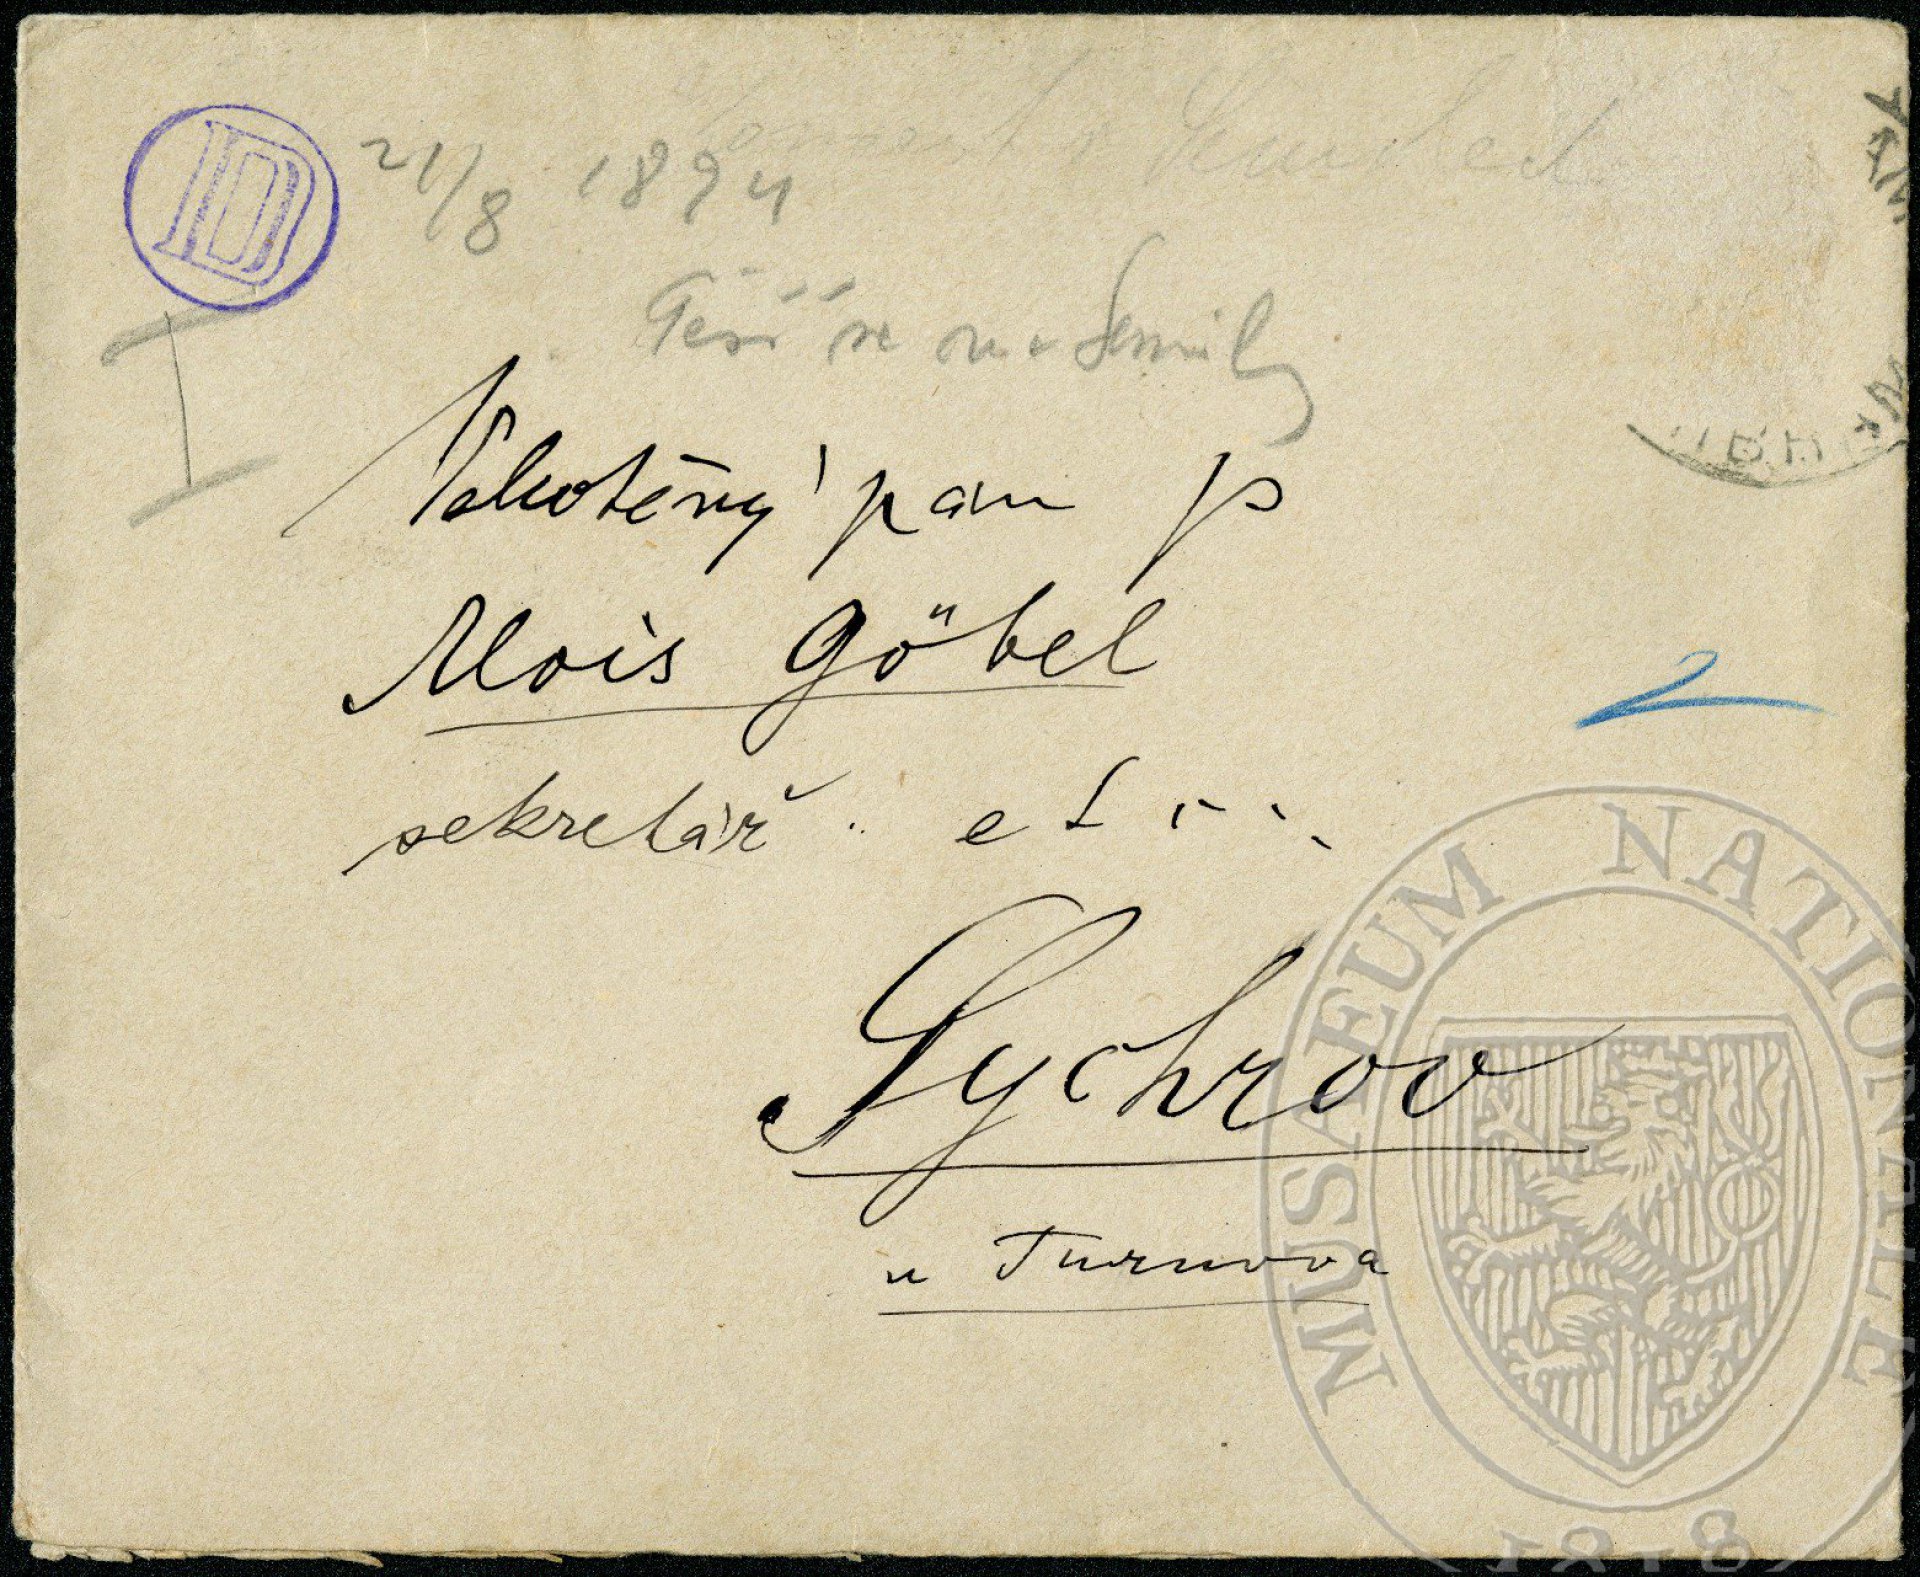 D
21/8 1894
Těší se na Semily
I
Velectěný pán p
Alois Göbel
2
sekretář et ...
Sychrov
u Turnova
MUSAEUM NATIONALE
1818